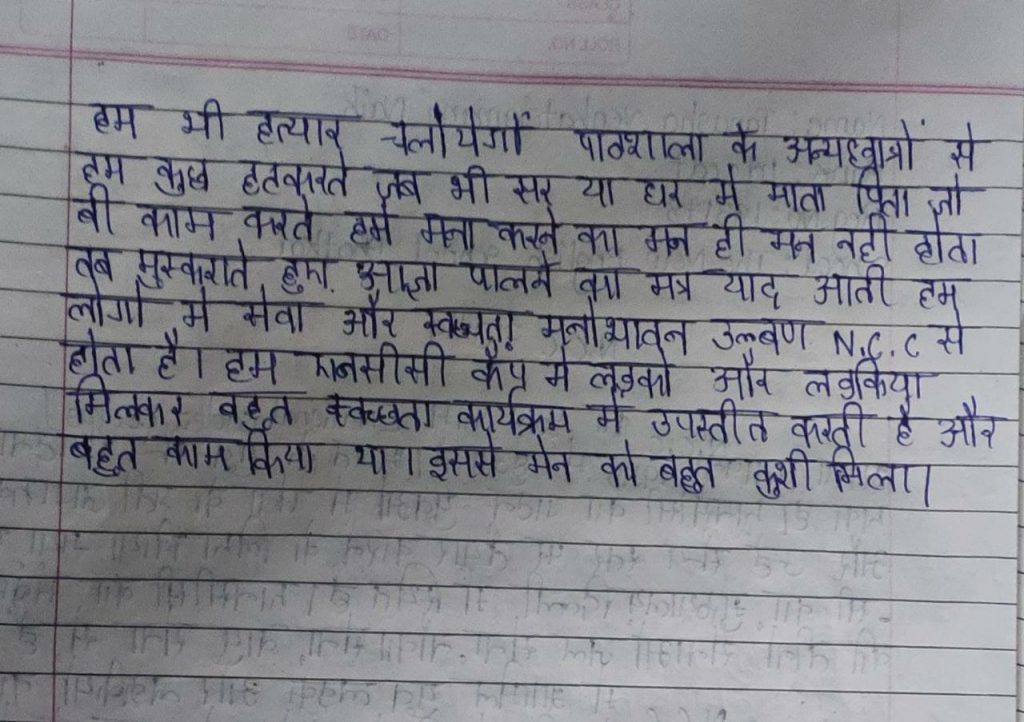 हम भी हत्यार चलोयेगों पाठशाला के अन्यछात्रों से
हम कुछ हटकरते जब भी सर या घर मे माता पिता जो
बी काम करते हमे मना करने का मन ही मन नही होता
तब मुस्कराते हुए आज्ञा पालने का मत्र याद आती हम
लोगो मे सेवा और स्वच्छता मनोभावन N.C.C से
होता है। हम एनसीसी कैंप मे लड़को और लडकिया
मिलकर बहुत स्वच्छता कार्यक्रम मे उपस्तीत करती है और
बहुत काम किया था। इससे मेन को बहुत कुशी मिला।